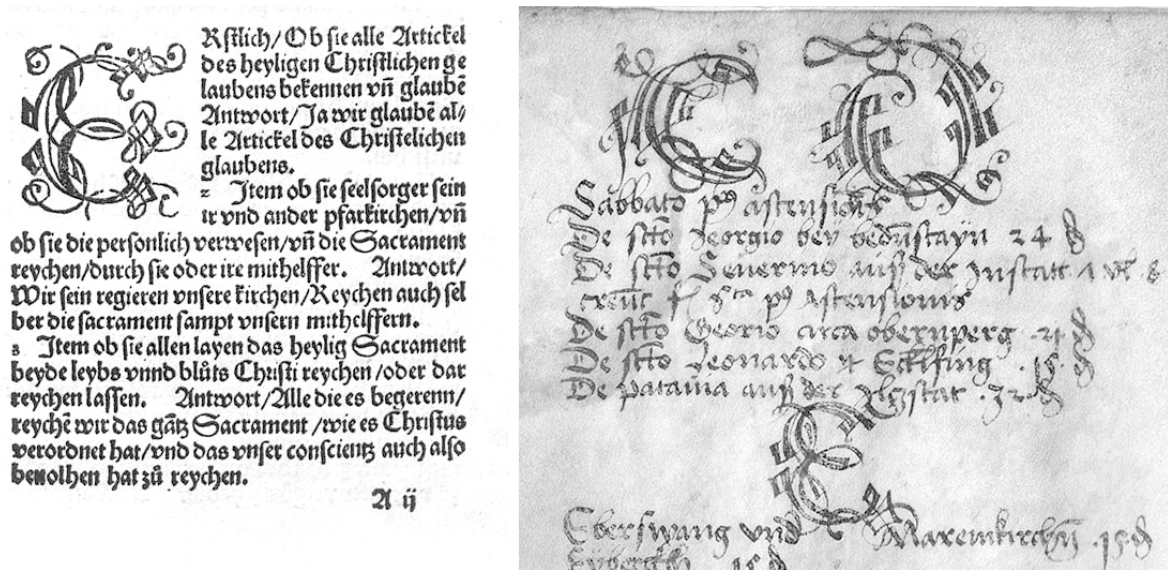 ERstlich/ Ob sie alle Artickel
des heyligen Christlichen ge
laubens bekennen vñ glaubẽ
Antwort/ Ja wir glaubẽ al⸗
le Artickel des Christelichen
glaubens.
2 Item ob sie seelsorger sein
ir vnd ander pfarkirchen/vñ
ob sie die personlich verwesen/vñ die Sacrament
reychen/durch sie oder ire mithelffer. Antwort/
Wir sein regieren vnsere kirchen/Reychen auch sel
ber die sacrament sampt vnsern mithelffern.
3 Item ob sie allen layen das heylig Sacrament
beyde leybs vnnd blůts Christi reychen/oder dar
reychen lassen. Antwort/Alle die es begerenn/
reychẽ wir das gãtz Sacrament/wie es Christus
verordnet hat/vnd das vnser conscientz auch also
beuolhen hat zů reychen.
A ij
C
Sabbato
De Jeorgio bey 24
De Seuerino auß der Instatt
De Georio circa obernperg
De Leonardo 15
De patauia auß der Ilgstat 32
E
Eberswang vnd 15